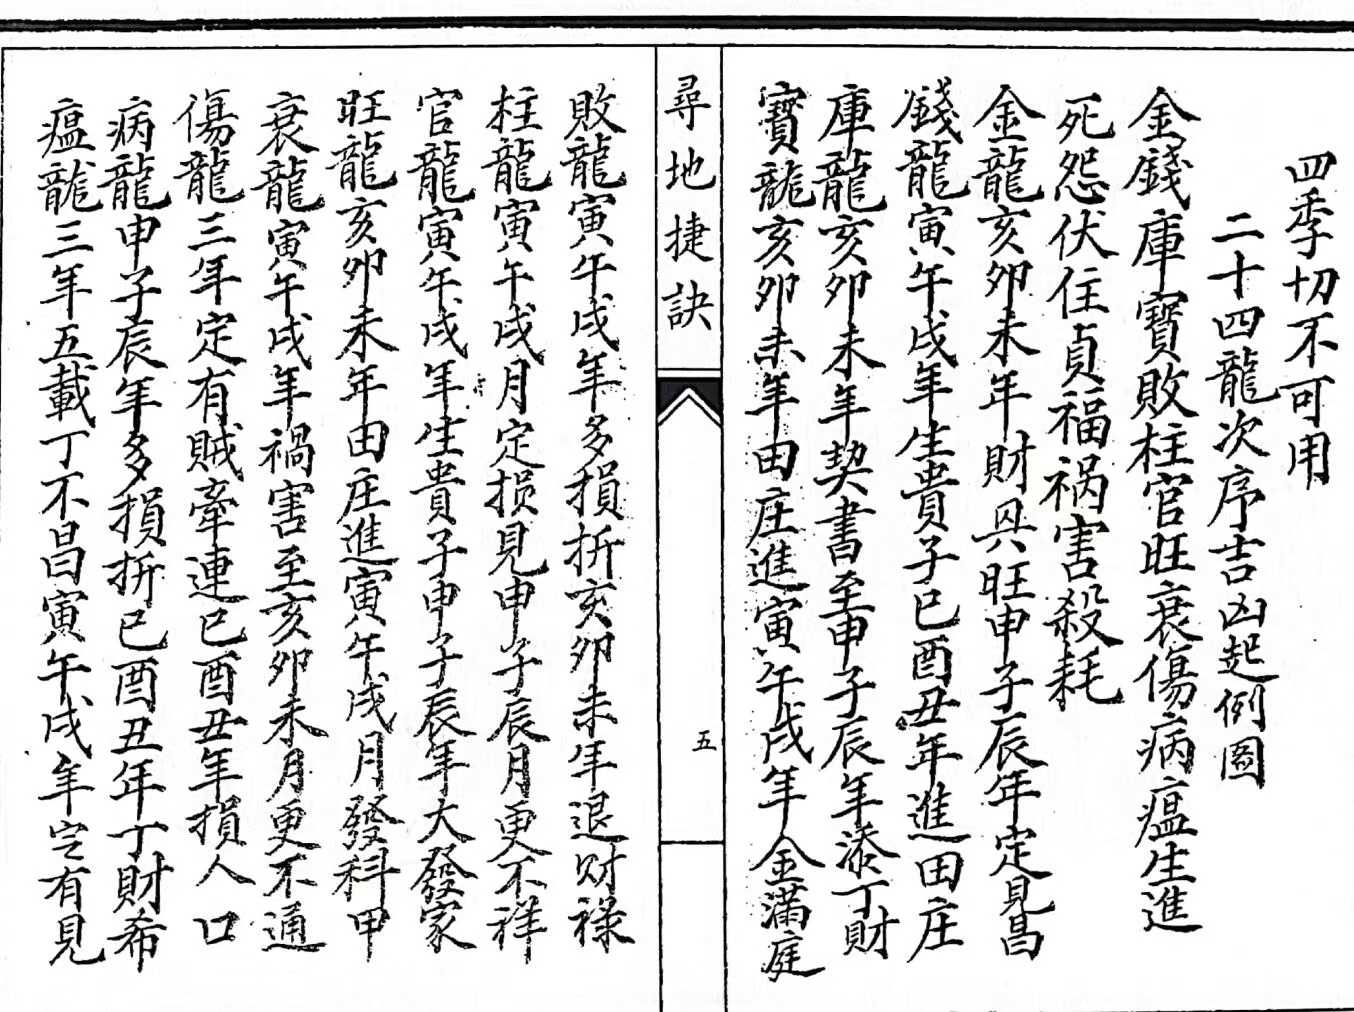 四季切不可用
二十四龍次序吉凶起例圖
金錢庫寶敗柱官旺衰傷病瘟生進
死怨伏住貞福祸害殺耗
金龍亥卯未年財興旺申子辰年定見昌
錢龍寅午戌年生貴子巳酉丑年進田庄
庫龍亥卯未年契書至申子辰年添丁財
寶龍亥卯未年田庄進寅午戌年金滿庭
尋地捷訣
五
敗龍寅午戌年多損折亥卯未年退财祿
柱龍寅午戌月定损見申子辰月更不祥
官龍寅午戌年生貴子申子辰年大發家
旺龍亥卯未年田庄進寅午戌月發科甲
衰龍寅午戌年禍害至亥卯未月更不通
傷龍三年定有賊牽連巳酉丑年損人口
病龍申子辰年多損折巳酉丑年丁財希
瘟龍三年五載丁不昌寅午戌年定有見